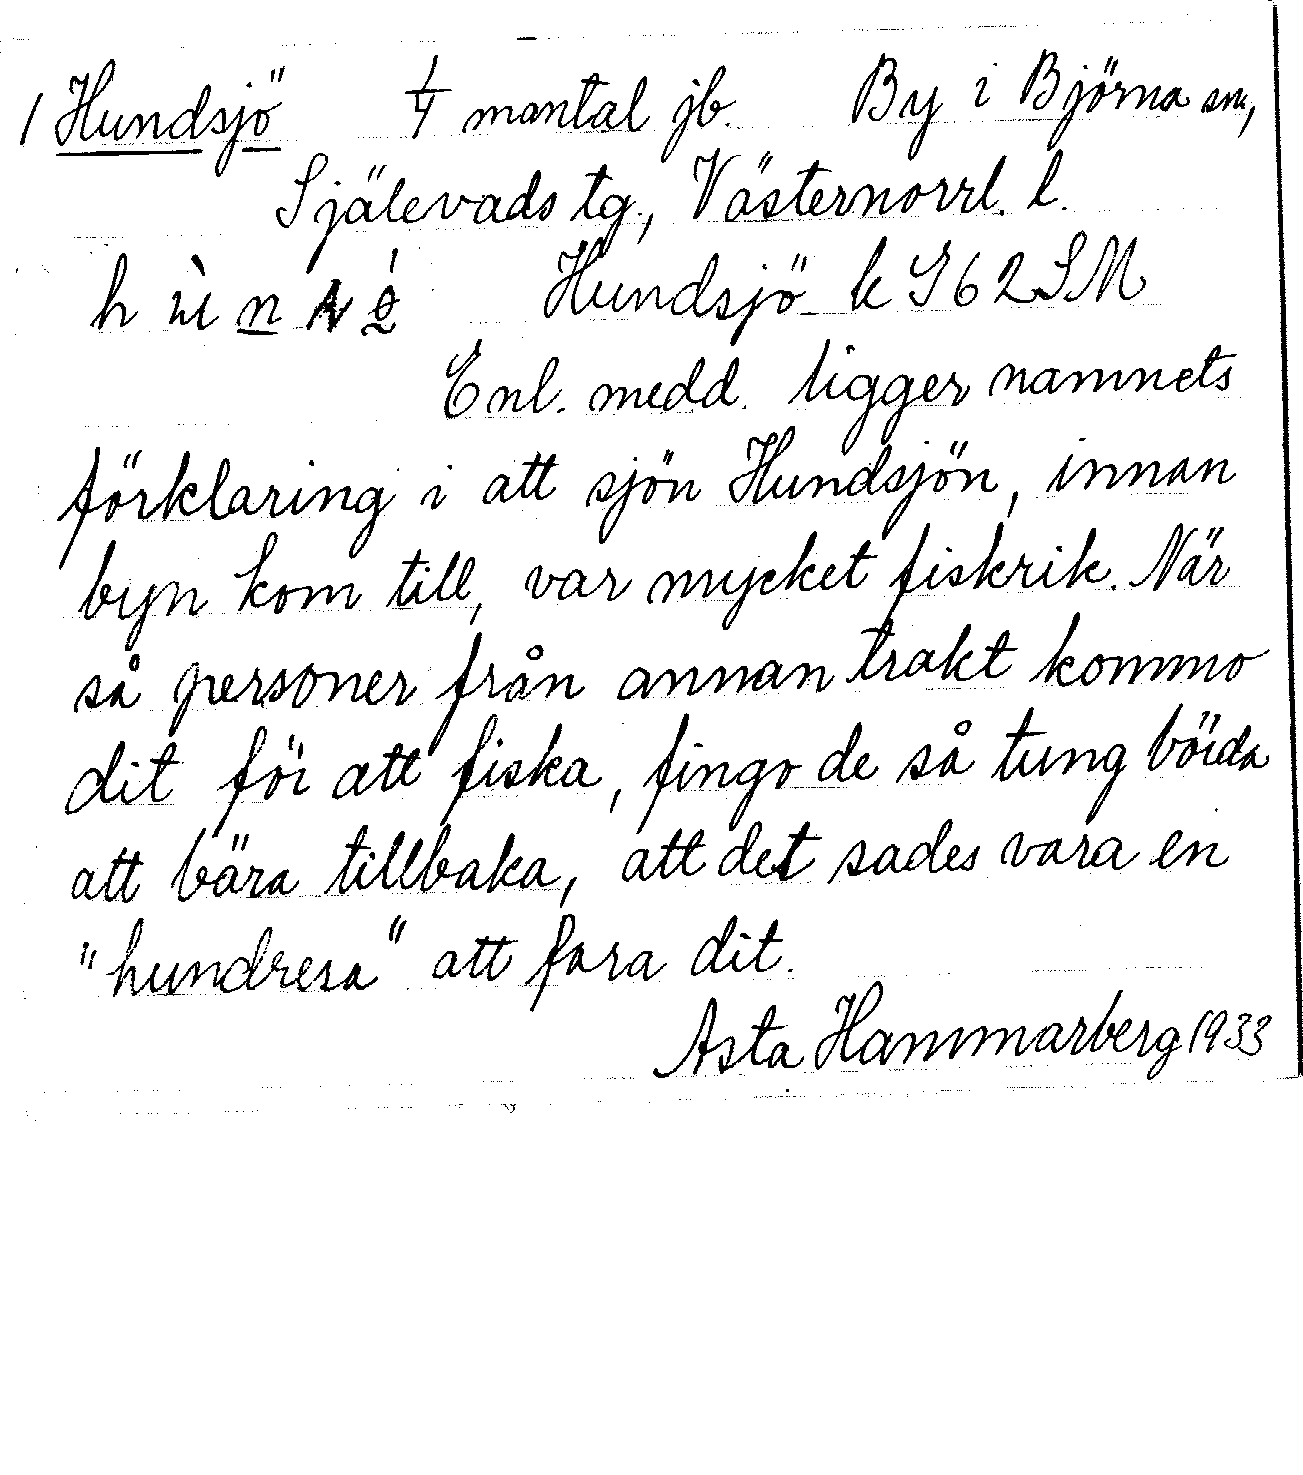 1 Hundsjö 1/4 mantal jb. By i Björna sn,
Själevads tg., Västernorrl. l.
Hundsjö k G62SM
Enl. medd. ligger namnets
förklaring i att sjön Hundsjön, innan
byn kom till, var mycket fiskrik. När
så personer från annan trakt kommo
dit för att fiska, fingo de så tung börda
att bära tillbaka, att det sades vara en
"hundresa" att fara dit.
Asta Hammarberg 1933